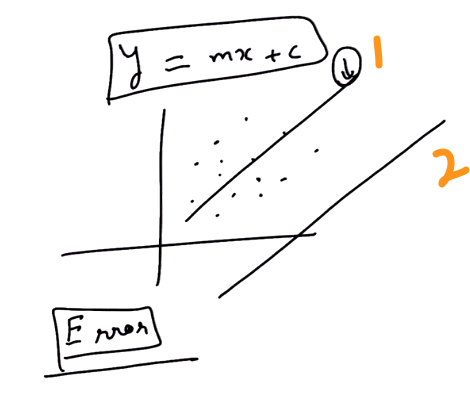 y = mx + c
1
2
Error